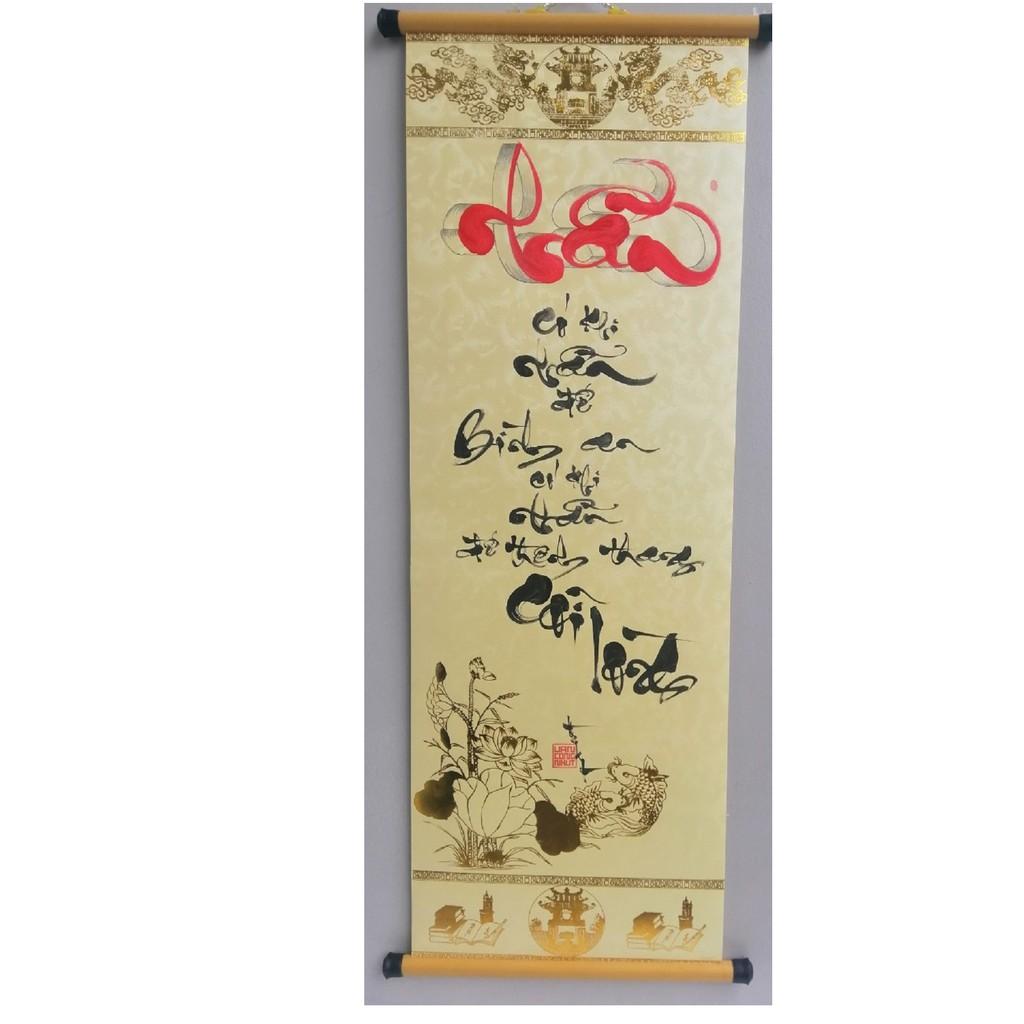 Nhẫn
Có khi
nhẫn
để
Bình an
có khi
nhẫn
để thênh thang
Cõi lòng
VĂN
CÔNG
NHỰT